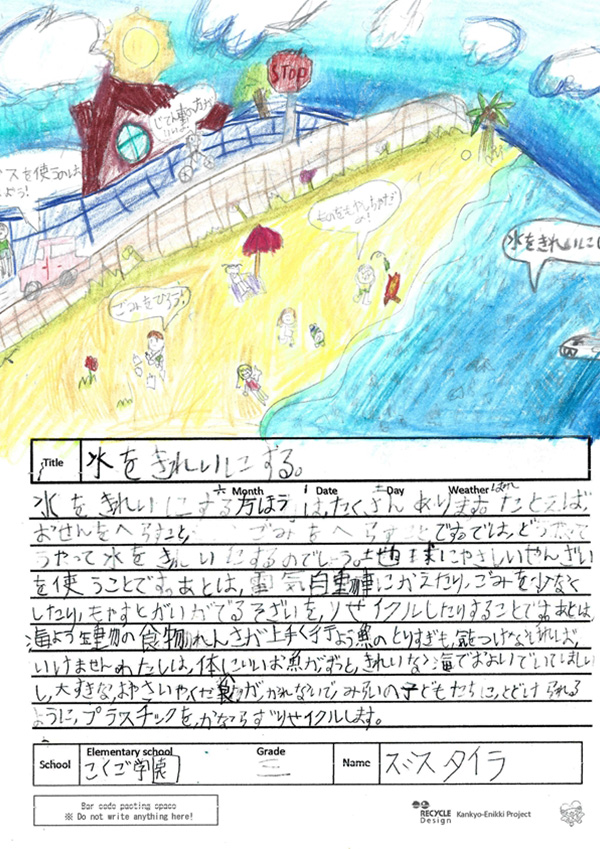 STOP
じてん車の方が
いいよ
スを使うのは
よう!
ものをもやしちゃだ
め!
水をきれいに
ごみをひろう!
Title 水をきれいにする。
Month Date Day Weather はれ
水をきれいにする方ほうは、たくさんあります。たとえば、
おせんをへらすこと、ごみをへらすことです。では、どうやって
うやって水をきれいにするのでしょう。地球にやさしいせんざい
を使うことです。あとは、電気自動車にかえたり、ごみを少なく
したり、もやすとがいがでるそざいを、リサイクルしたりすることです。あとは、
海よう生物の食物れんさが上手く行よう魚のとりすぎも、気をつけなければ、
いけません。わたしは、体にいいお魚がずっと、きれいな海でおよいでいてほしい
し、大すきな、おやさいやくだ食がかれないで、みらいの子どもたちに、とどけられる
ように、プラスチックを、かならずリサイクルします。
School Elementary school こくご学園 Grade 三 Name スミス タイラ
Bar code pasting space
※ Do not write anything here!
RECYCLE Design Kankyo-Enikki Project